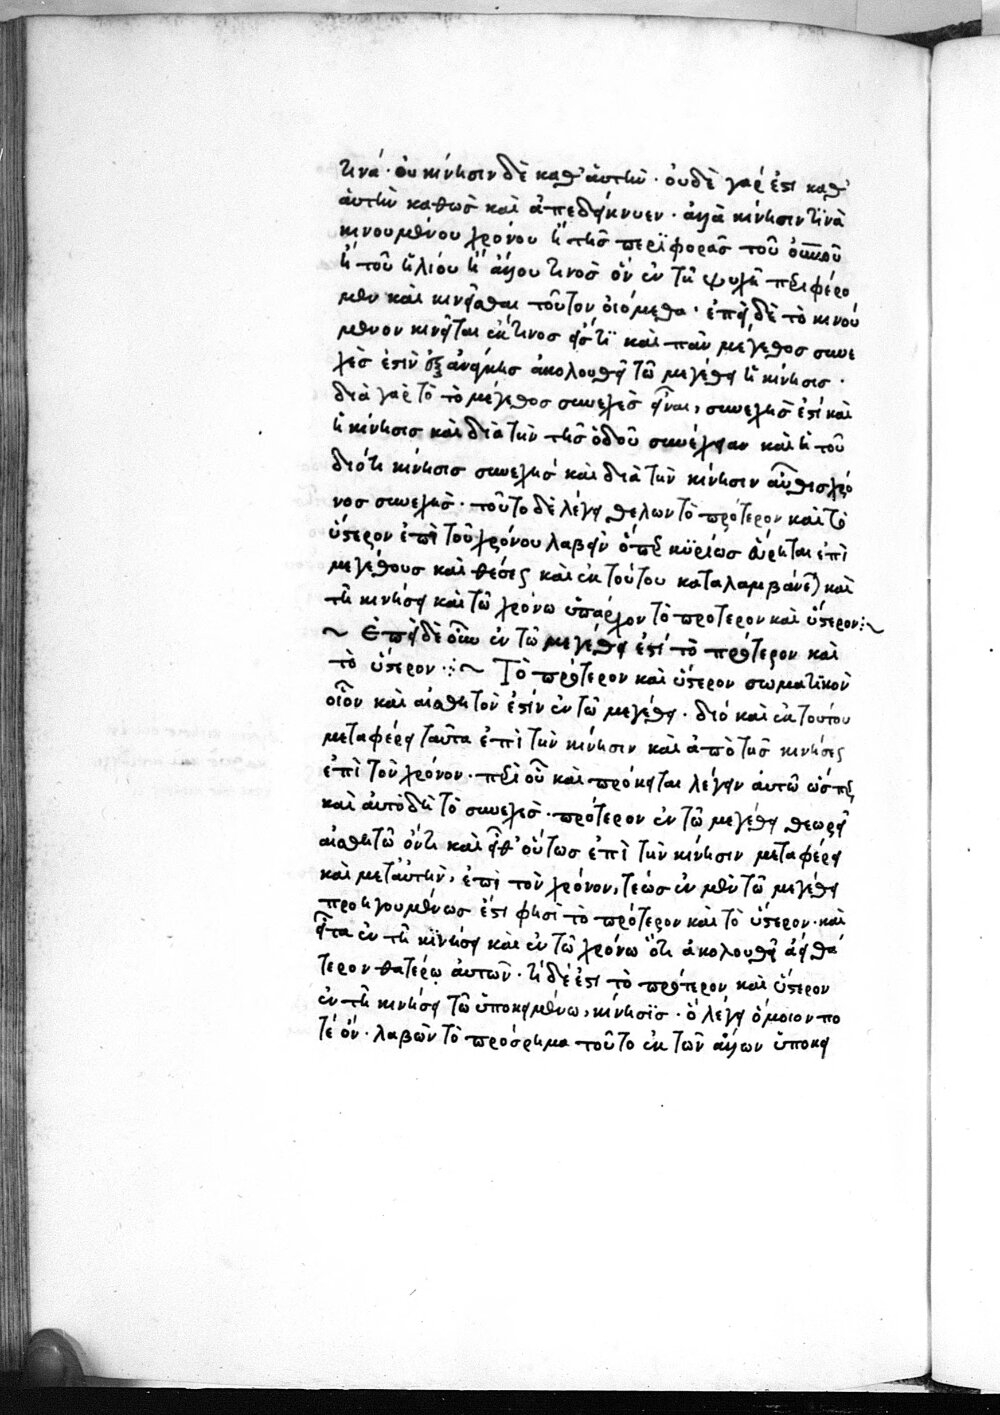 τινά· οὐ κίνησιν δὲ καθ' αὑτὴν· οὐδὲ γάρ ἐστι καθ'
αὑτὴν καθὼς καὶ ἀπεδείκνυεν· ἀλλὰ κίνησιν τινὰ
κινουμένου χρόνου ἢ τῆς περιφορᾶς τοῦ οὐνοῦ
ἢ τοῦ ἡλίου ἢ ἄλλου τινὸς ὃν ἐν τῆ ψυχῆ περιφέρο
μεν καὶ κινεῖσθαι τοῦτον οἰόμεθα· ἐπεὶ δὲ τὸ κινού
μενον κινεῖται ἔκ τινος εἴς τι καὶ πᾶν μέγεθος συνε
χές ἐστιν ἐξ ἀνάγκης ἀκολουθεῖ τῶ μεγέθει ἡ κίνησις·
διὰ γὰρ τὸ τὸ μέγεθος συνεχὲς εἶναι, συνεχής ἐστι καὶ
ἡ κίνησις καὶ διὰ τὴν τῆς ὁδοῦ συνέχειαν καὶ ἡ τοῦ
διότι κίνησις συνεχής καὶ διὰ τὴν κίνησιν αὖθις χρό
νος συνεχής· τοῦτο δὲ λέγει θέλων τὸ πρότερον καὶ τὸ
ὕστερον ἐπὶ τοῦ χρόνου λαβεῖν ὅπερ κυρίως εἴρηται ἐπὶ
μεγέθους καὶ θέσεως καὶ ἐκ τούτου καταλαμβάνεται καὶ
τῆ κινήσει καὶ τῶ χρόνω ὑπάρχον τὸ πρότερον καὶ ὕστερον:~
~ Ἐπεὶ δὲ οὖν ἐν τῶ μεγέθει ἐστί τὸ πρότερον καὶ
τὸ ὕστερον :~ Τὸ πρότερον καὶ ὕστερον σωματικὸν
οἷον καὶ αἰσθητόν ἐστιν ἐν τῶ μεγέθει· διό καὶ ἐκ τούτου
μεταφέρει ταῦτα ἐπὶ τὴν κίνησιν καὶ ἀπὸ τῆς κινήσεως
ἐπὶ τὸν χρόνον· περὶ οὗ καὶ πρόκειται λέγειν αὐτῶ ὥσπερ
καὶ αὐτὸ δὴ τὸ συνεχές· πρότερον ἐν τῶ μεγέθει θεωρεῖ
αἰσθητῶ ὄντι καὶ εἶθ' οὕτως ἐπὶ τὴν κίνησιν μεταφέρει
καὶ μετ' αὐτὴν, ἐπὶ τὸν χρόνον, τέως ἐν μὲν τῶ μεγέθει
προηγουμένως ἐστι φησὶ τὸ πρότερον καὶ τὸ ὕστερον· καὶ
εἶτα ἐν τῆ κινήσει καὶ ἐν τῶ χρόνω ὅτι ἀκολουθεῖ ἀεὶ θά
τερον θατέρω αὐτῶν· τί δέ ἐστι τὸ πρότερον καὶ ὕστερον
ἐν τῆ κινήσει τῶ ὑποκειμένω, κίνησις· ὃ λέγει ὅμοιον πο
τέ ὄν· λαβὼν τὸ πρόσρημα τοῦτο ἐκ τῶν ἄλλων ὑποκει